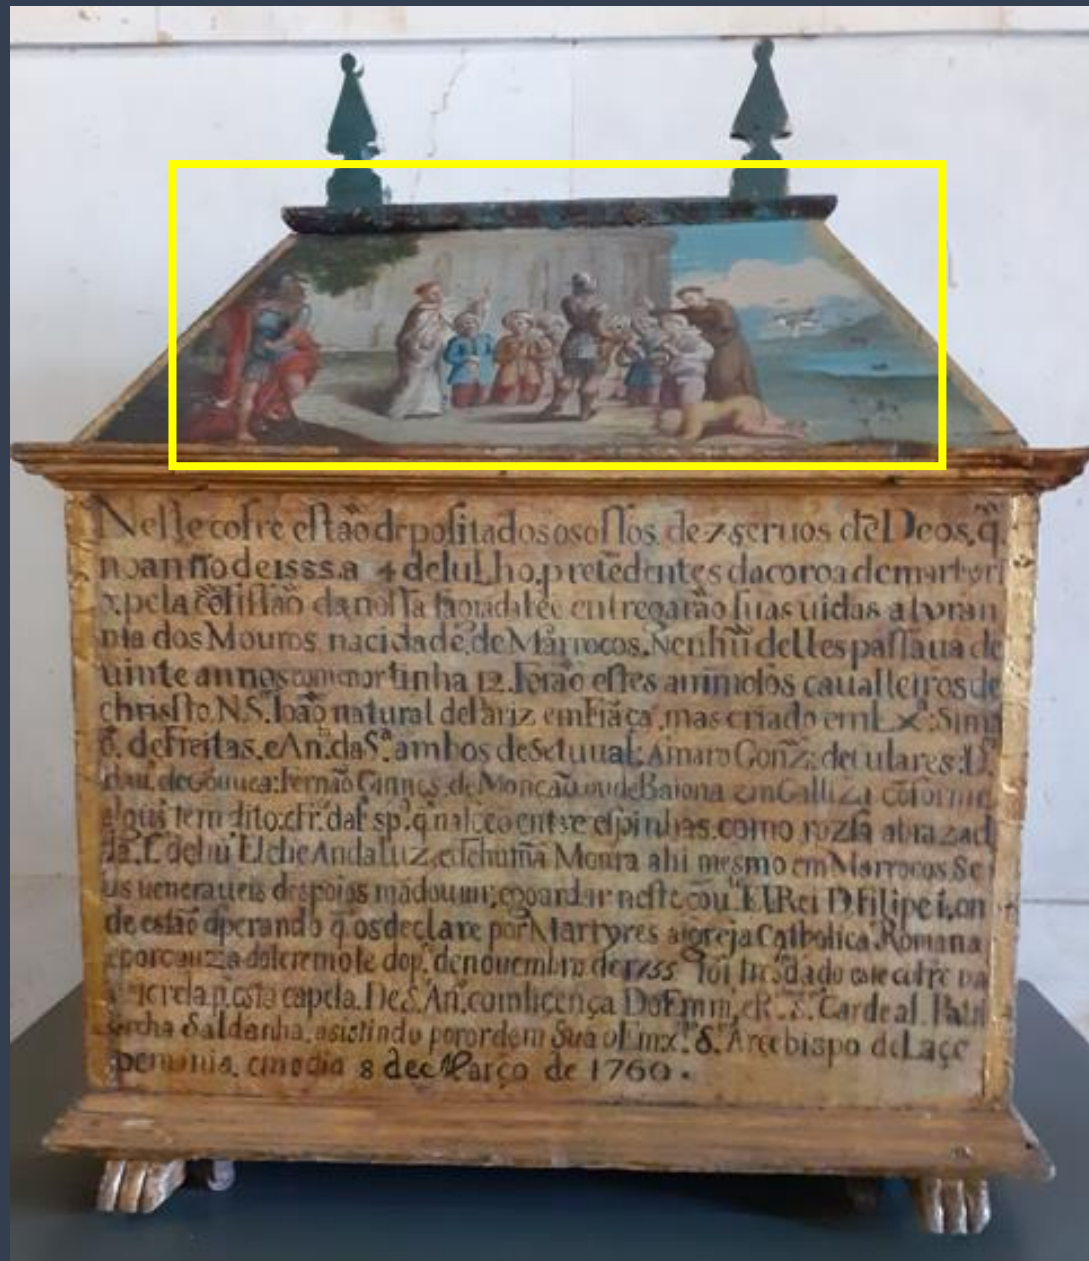 Neste cofre estão depositados os ossos de 7 seruos de Deos, q̃
no anño de 1585. a 4 de Iulho, pretẽdentes da coroa de martyri
o, pela cõfissão da nossa sagrada fee entregarão suas uidas a tyran
nia dos Mouros na cidade, de Marrocos. Nenhũ delles passaua de
uinte annos e o menor tinha 12. Forão estes animosos caualleiros de
christo. N.S. Ioão natural de Pariz em Frãça, mas criado em Lxª: Simã
o. de Freitas, e Anº. da Sª. ambos de Setuual: Amaro Gonz̃:
de Gouuea: Fernão de Monção, ou de Baiona em Galliza cõforme
algũs tem dito: q̃ naſceo entre espinhas, como roza abrazad
hũ Elche Andaluz, e de hũma Moura ahi mesmo em Marrocos Se
us ueneraueis despoios mãdou uir, e goardar neste cou.ᵗᵒ El Rei D. Filipe 1, on
de estão esperando q̃ os declare por Martyres a igreja Catholica Romana
e por cauza do terremoto do pº. de nouembro de 1755 foi tresladado este cofre pa
capela. De S. Anº. com licença Do Emmº. e Rº. S. Cardeal. Patri
archa Saldanha, asistindo por ordem Sua o Emxº. S. Arcebispo de Laçe
demonia, em o dia 8 de Março de 1760.